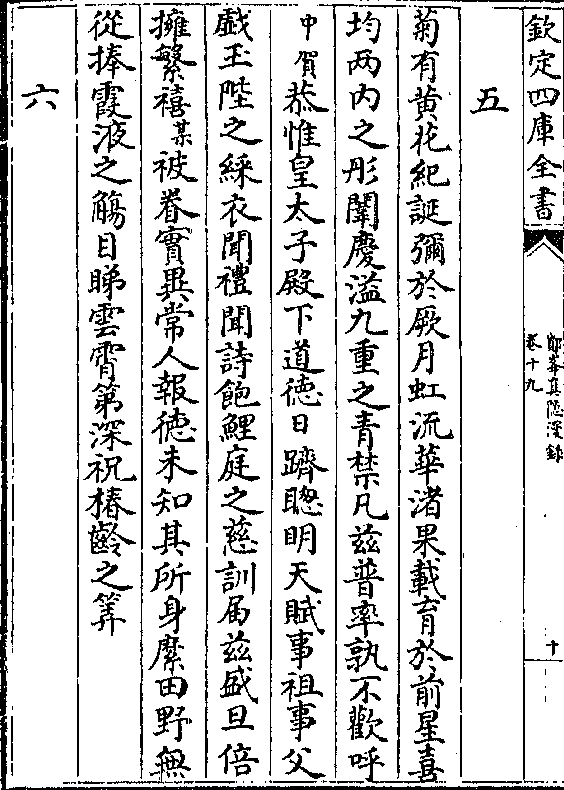 欽定四庫全書
鄮峯真隱漫錄
卷十九
十
五
菊有黄花紀誕彌於厥月虹流華渚果載育於前星喜
均两内之彤闈慶溢九重之青禁凡兹普率孰不歡呼
中賀恭惟皇太子殿下道徳日躋聰明天賦事祖事父
戯玉陛之綵衣聞禮聞詩飽鯉庭之慈訓届兹盛旦倍
擁繁禧某被眷實異常人報徳未知其所身縻田野無
從捧霞液之觴目睇雲霄第深祝椿齡之筭
六